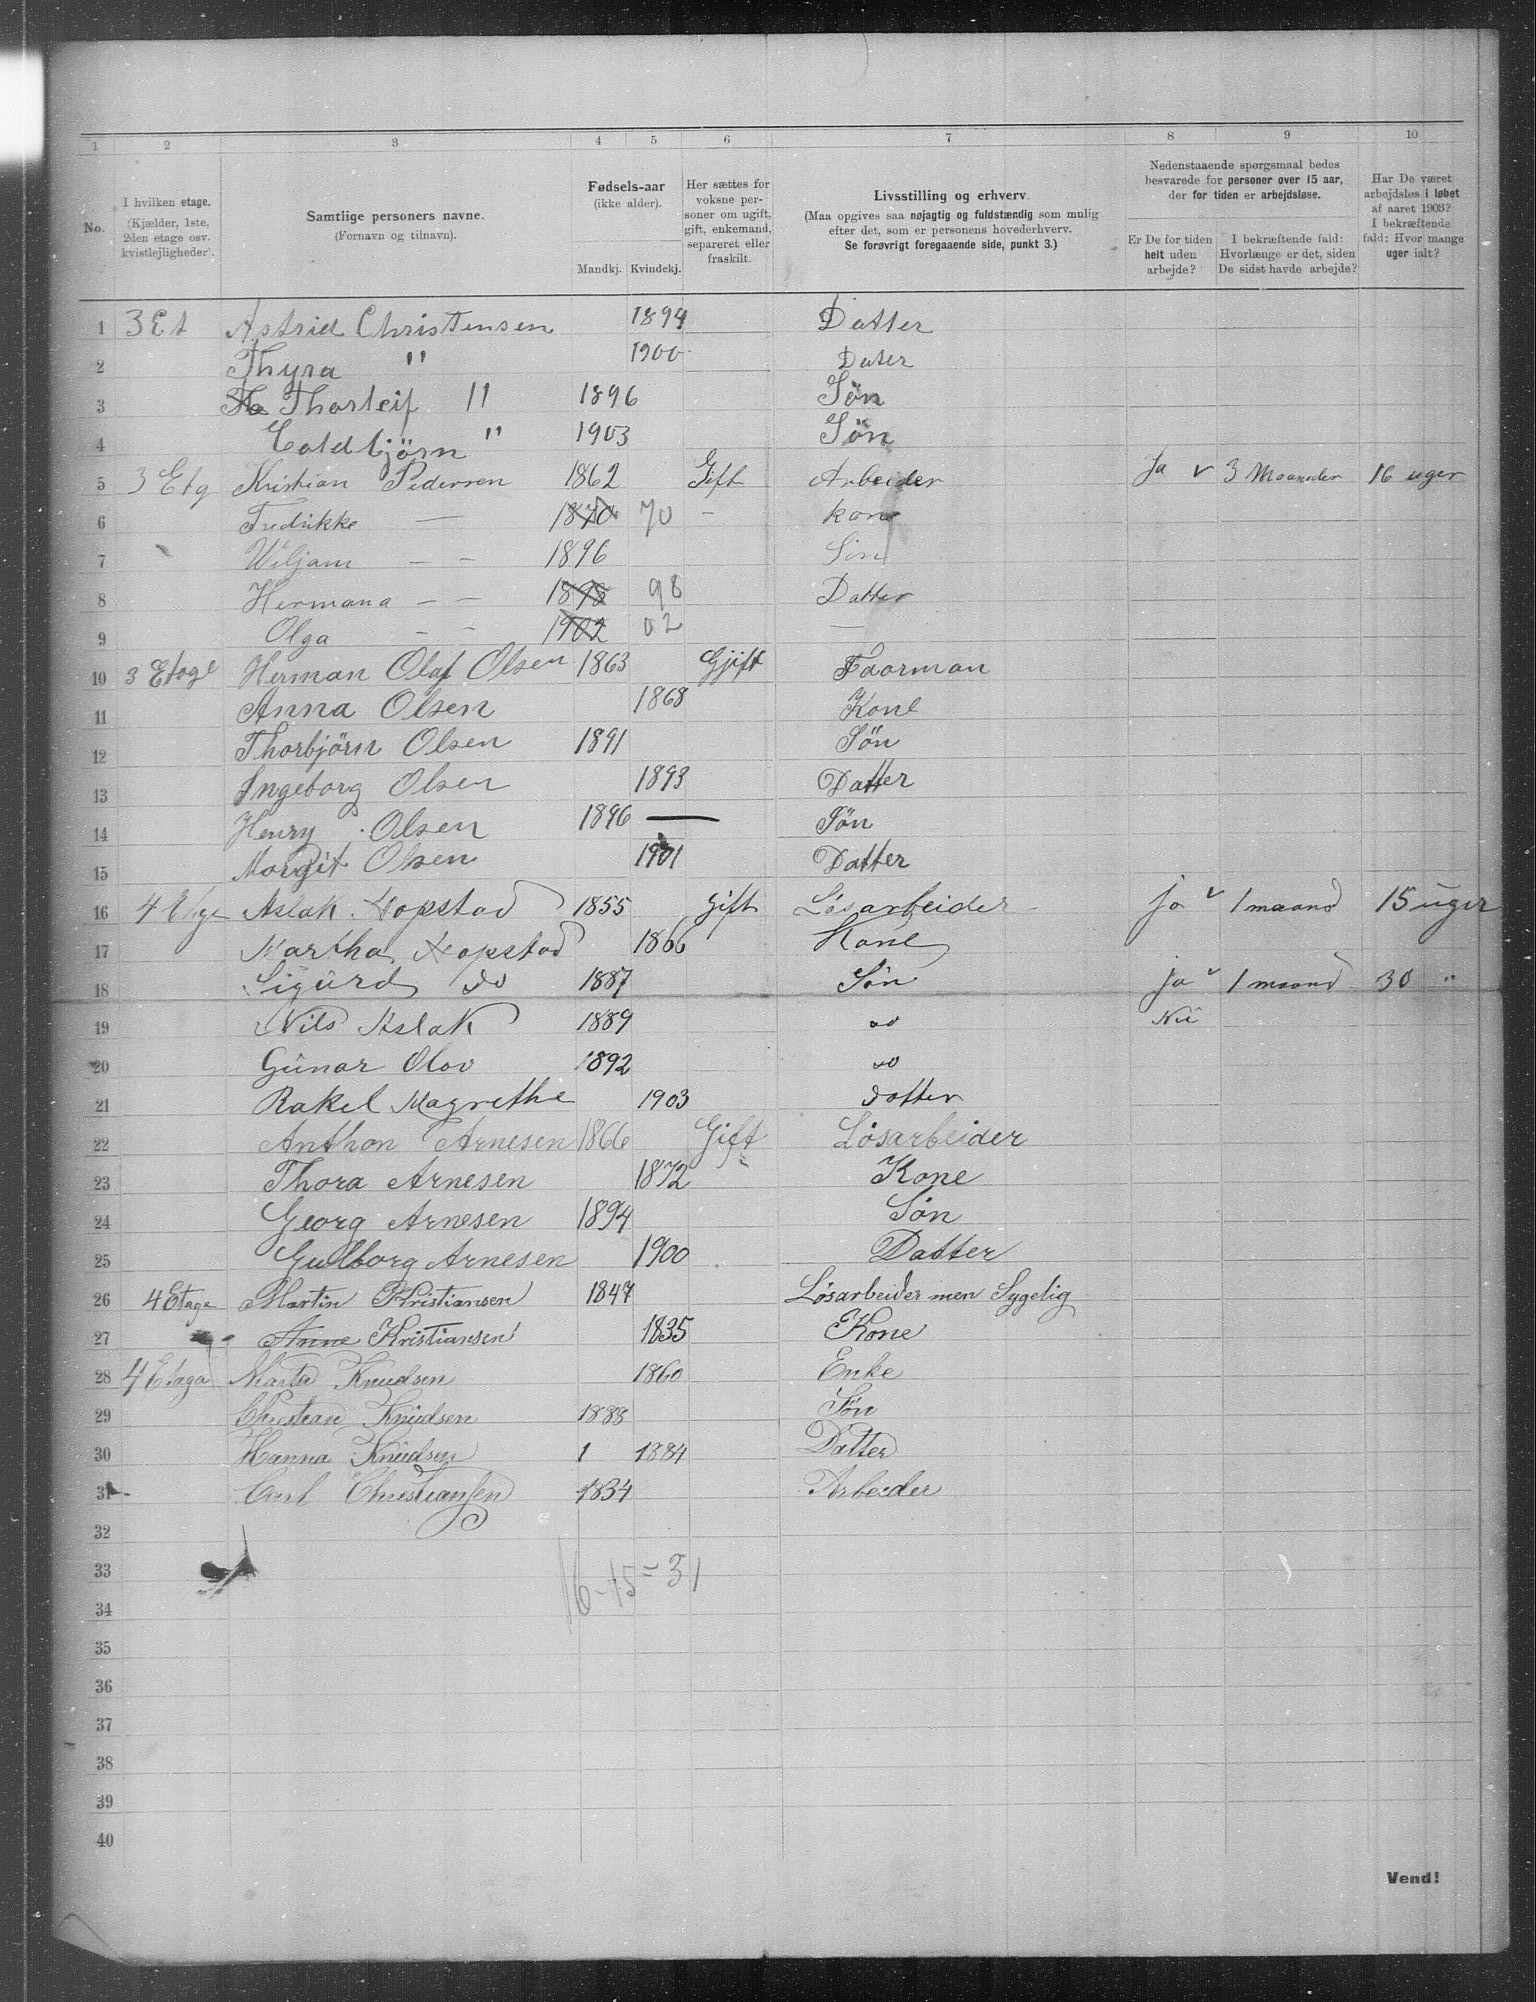 1 2 3 4 5 6 7 8 9 10
No.
I hvilken etage.
(Kjælder, 1ste,
2den etage osv.
kvistlejligheder).
Samtlige personers navne.
(Fornavn og tilnavn).
Fødsels-aar
(ikke alder).
Mandkj. Kvindekj.
Her sættes for
voksne per-
soner om ugift,
gift, enkemand,
separeret eller
fraskilt.
Livsstilling og erhverv.
(Maa opgives saa nøjagtig og fuldstændig som mulig
efter det, som er personens hovederhverv.
Se forøvrigt foregaaende side, punkt 3.)
Nedenstaaende spørgsmaal bedes
besvarede for personer over 15 aar,
der for tiden er arbejdsløse.
Er De for tiden
helt uden
arbejde?
I bekræftende fald:
Hvorlænge er det, siden
De sidst havde arbejde?
Har De været
arbejdsløs i løbet
af aaret 1903?
I bekræftende
fald: Hvor mange
uger ialt?
1 3 Et Astrid Christensen 1894 Datter
2 Thyra " 1900 Dater
3 Thorleif " 1896 Søn
4 " 1903 Søn
5 3 Etg Kristian Pedersen 1862 Gift Arbeider Ja v 3 Maaneder 16 uger
6 Fredrikke — 1870 70 - kone
7 Wiljam — — 1896 Sön
8 Hermana — — 1898 98 Datter
9 Olga — — 1902 02 —
10 3 Etage Herman Olaf Olsen 1863 Gjift Foorman
11 Anna Olsen 1868 Kone
12 Thorbjörn Olsen 1891 Søn
13 Ingeborg Olsen 1893 Datter
14 Henry Olsen 1896 — Søn
15 Margit Olsen 1901 Datter
16 4 Etge Aslak Hopstad 1855 Gift Løsarbeider ja v 1 maand 15 uger
17 Martha Hopstad 1866 Kone
18 Sigurd do 1887 Søn ja v 1 maand 30 "
19 Nils Aslak 1889 do Nei
20 Gunar Olav 1892 do
21 Rakel Magrethe 1903 datter
22 Anthon Arnesen 1866 Gift Løsarbeider
23 Thora Arnesen 1872 " Kone
24 Georg Arnesen 1894 Søn
25 Gulborg Arnesen 1900 Datter
26 4 Etage Martin Kristiansen 1847 Løsarbeider men Sygelig
27 Anne Kristiansen 1835 Kone
28 4 Etaga Marta Knudsen 1860 Enke
29 Christian Knudsen 1888 Søn
30 Hanna Knudsen 1 1884 Datter
31 Carl Christiansen 1834 Arbeider
32
33
34
16-15=31
35
36
37
38
39
40
Vend!